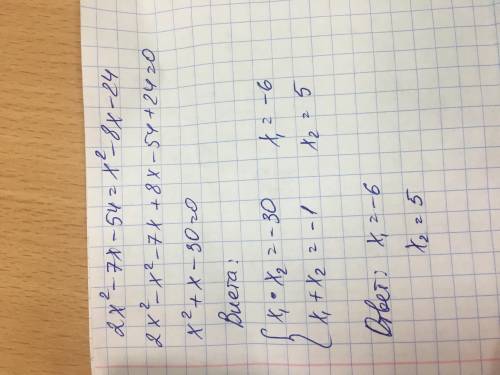 2x² - 7x - 54 = x² - 8x - 24
2x² - x² - 7x + 8x - 54 + 24 = 0
x² + x - 30 = 0
Виета:
{ x₁ • x₂ = -30 x₁ = -6
x₁ + x₂ = -1 x₂ = 5
Ответ: x₁ = -6
x₂ = 5